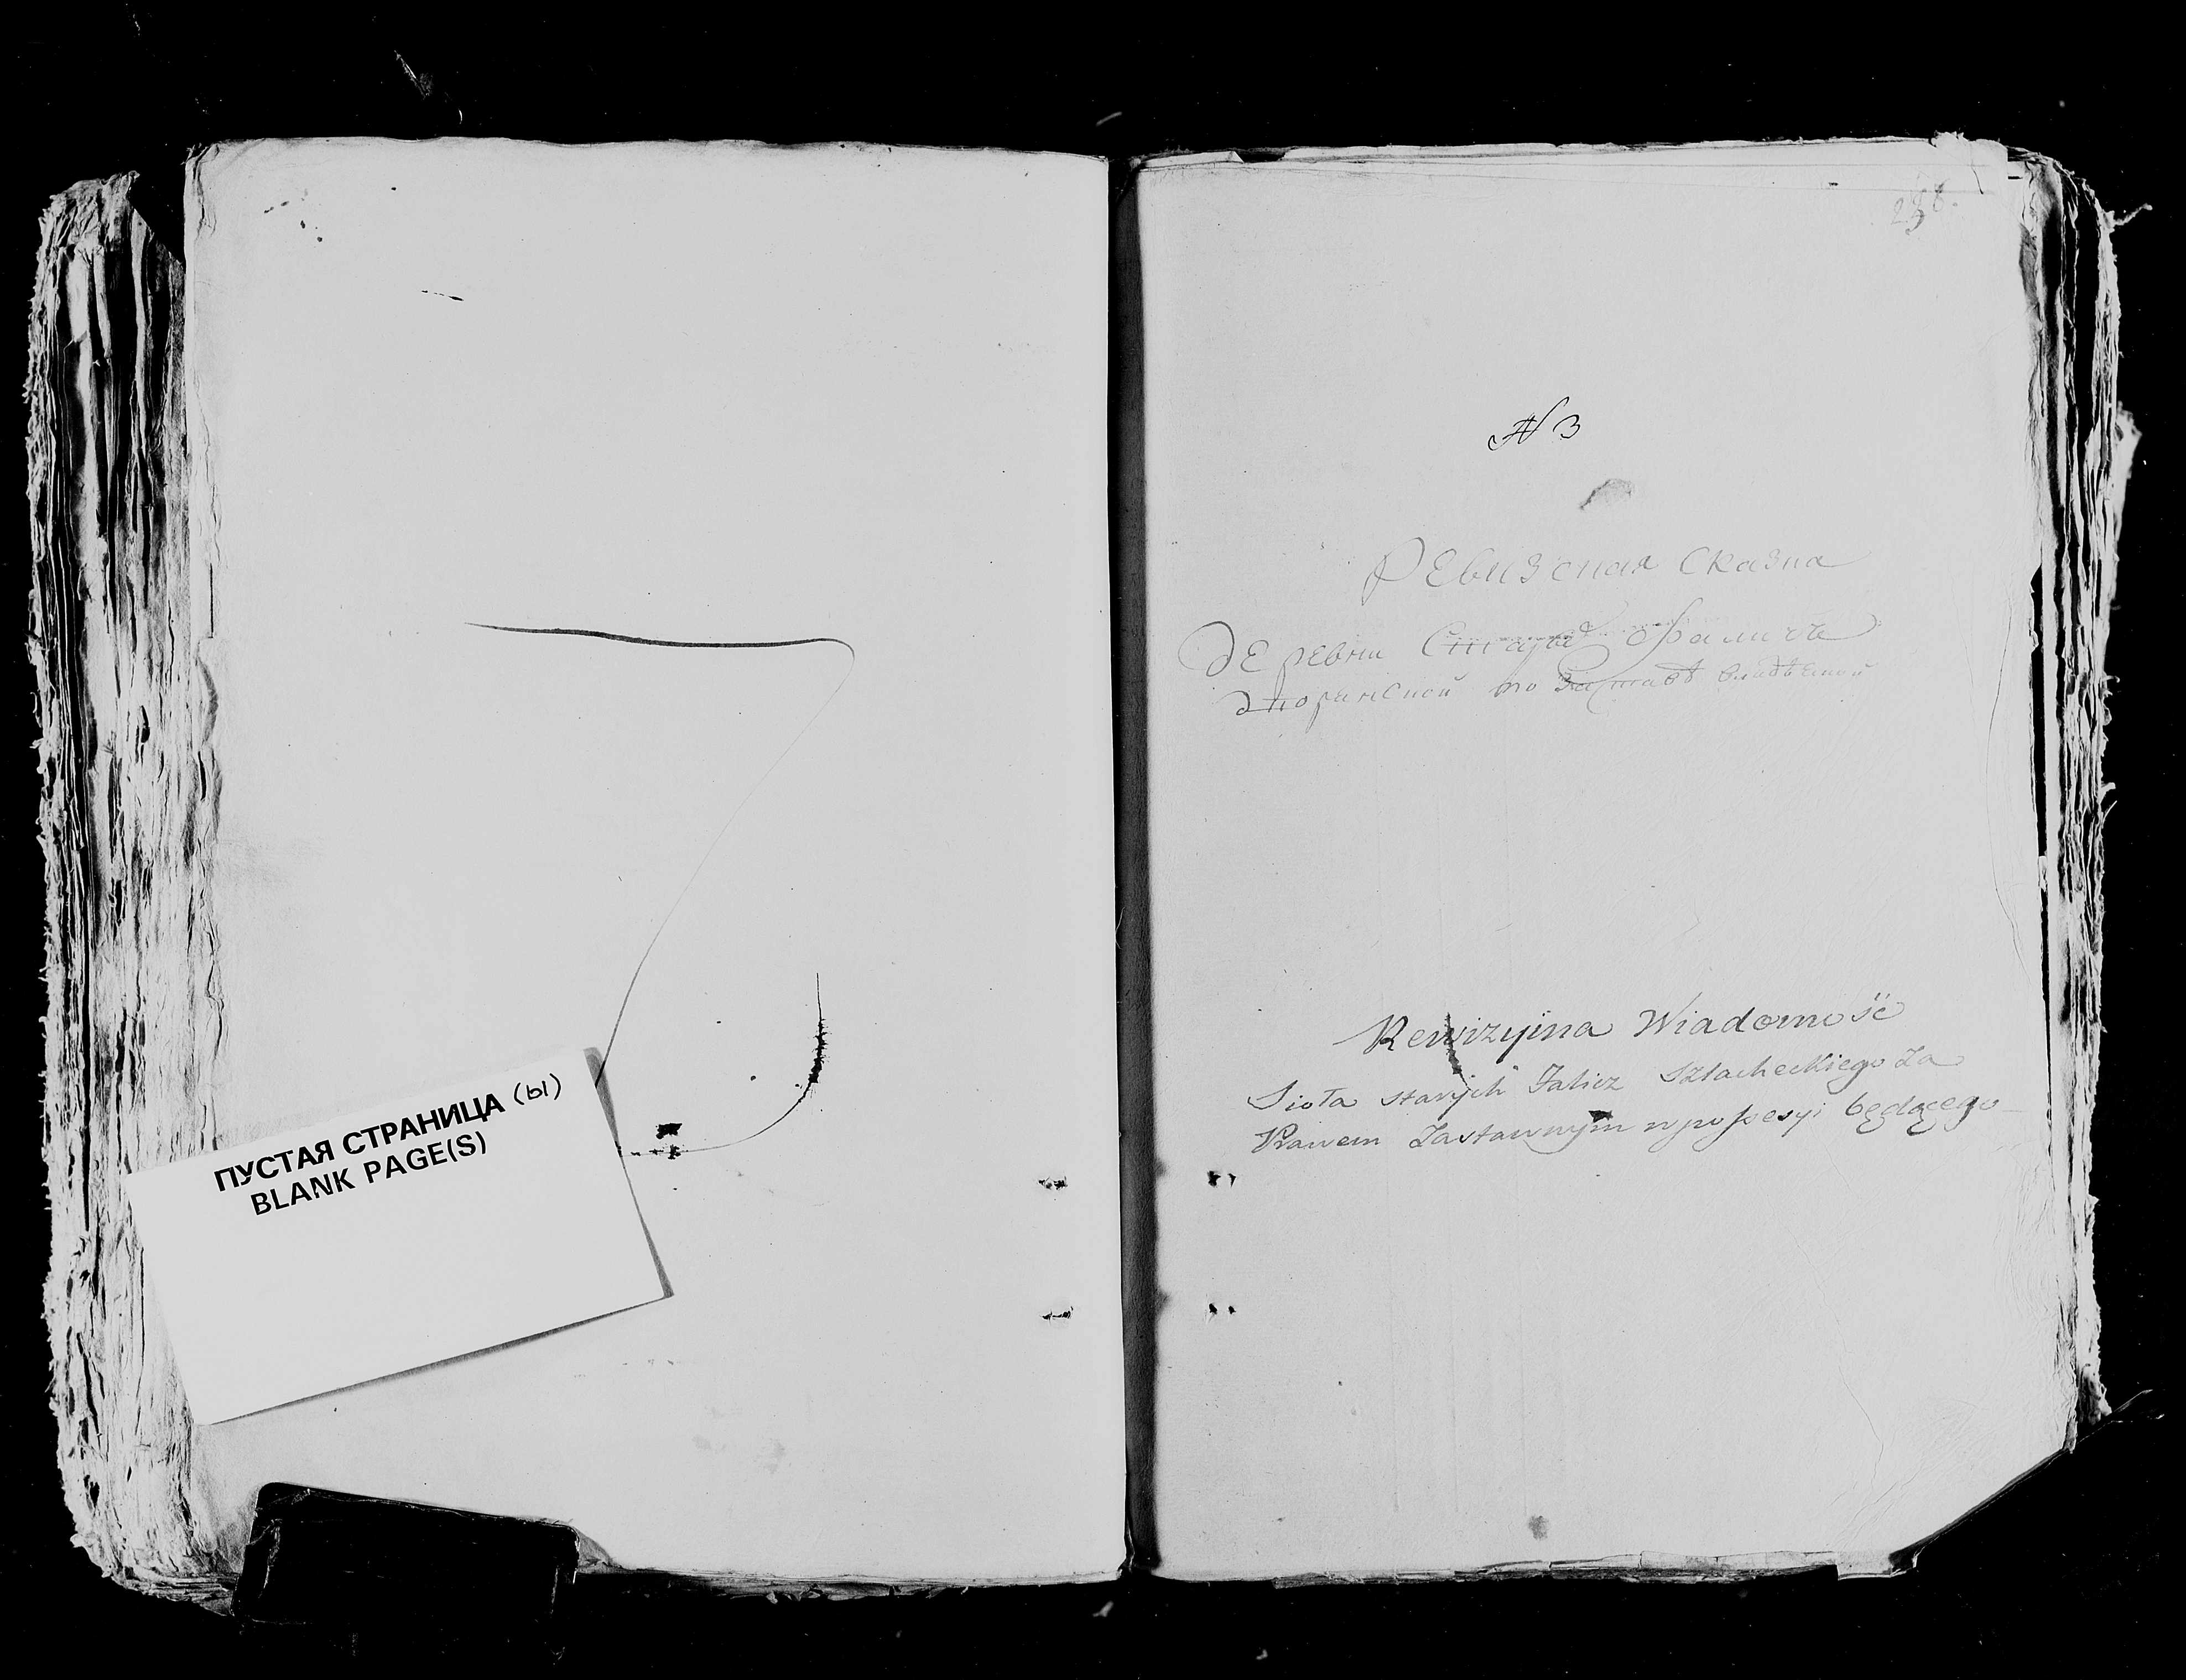 ПУСТАЯ СТРАНИЦА (Ы)
BLANK PAGE(S)
№ 3
Ревизская Сказка
деревни Старых
дворянской по заставѣ владѣемой
Rewizyina Wiadomość
Sioła starych Falicz Szlacheckiego Za
Prawem Zastawnym w possesyi będącego